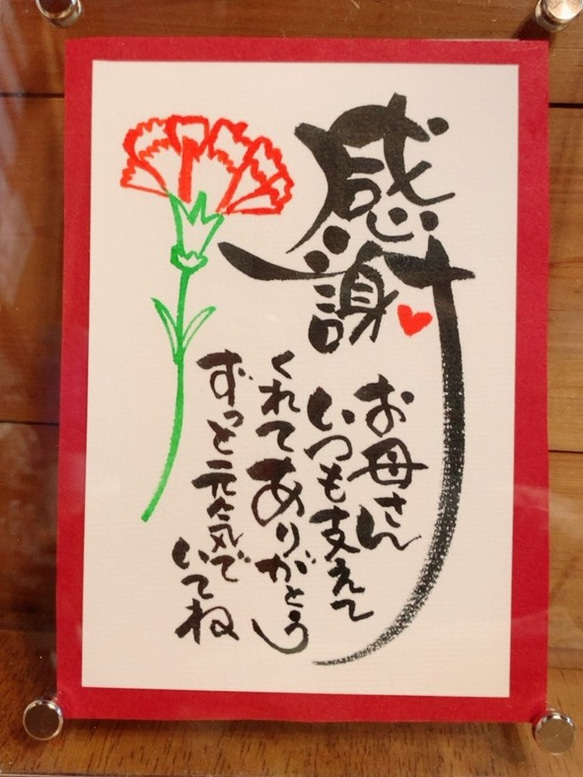 感謝
お母さん
いつも支えて
くれてありがとう
ずっと元気で
いてね